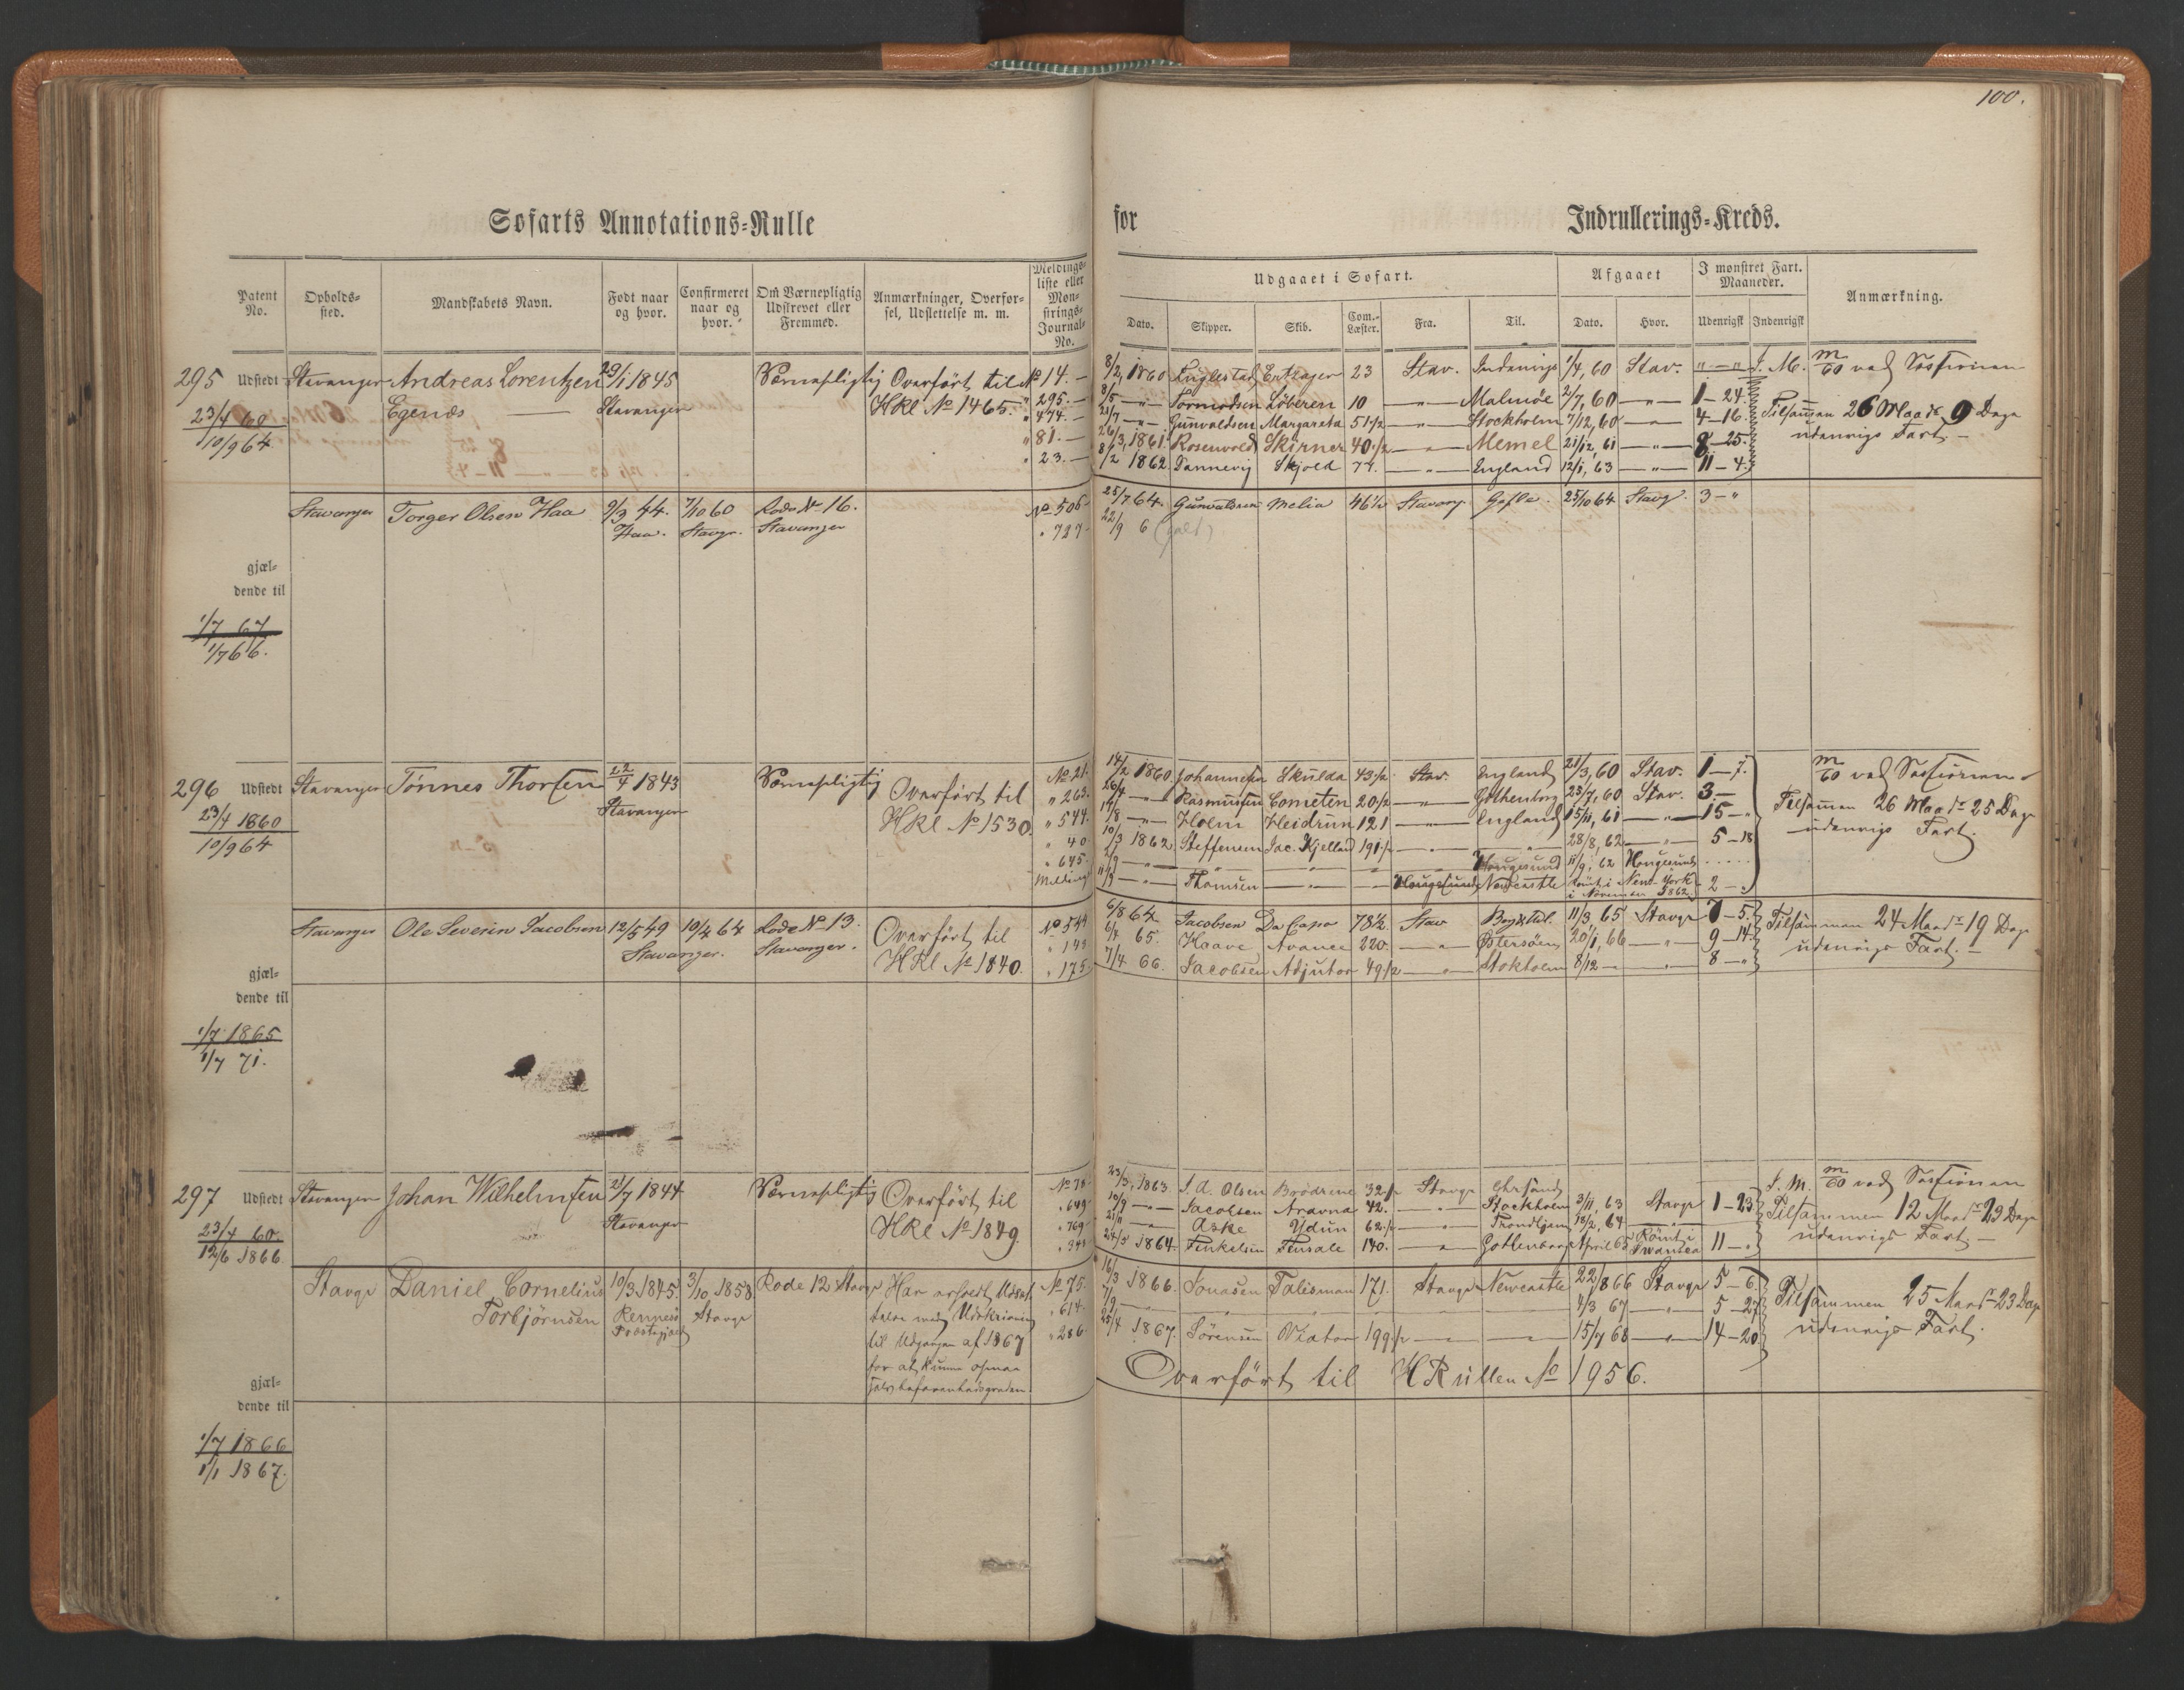 100.
Søfarts Annotations-Rulle for Indrullerings-Kreds.
Patent No. Opholds-sted. Mandskabets Navn. Født naar og hvor. Confirmeret naar og hvor. Om Værnepligtig Udskrevet eller Fremmed. Anmærkninger, Overførsel, Udslettelse m. m. Meldings-liste eller Mønstrings-Journal-No.
Udgaaet i Søfart. Afgaaet I mønstret Fart. Maaneder. Anmærkning.
Dato. Skipper. Skib. Com.-Læster. Fra. Til. Dato. Hvor. Udenrigsk Indenrigsk
295 Udstedt Stavanger Andreas Lorentzen 29/1 1845 Værnepligtig Overført til No 14. —
23/4 60 Egenæs — Stavanger HRl No 1465. " 295. —
10/9 64. " 474. —
" 81. —
" 23. —
8/2, 1860 Entrager 23 Stav. Indenrigs 1/4, 60 Stav. " — " S. M. m/60 ved Sessionen
8/5 — " — Tormodsen Løberen 10 — " — Malmøe 2/7, 60 — " — 1 — 24.
21/7 — " — Gunvaldsen Margareta 51 1/2 — " — Stockholm 7/12, 60 — " — 4 — 16. Tilsammen 26 Maadr 9 Dage
26/3, 1861 Rosenvold Skirner 40 1/2 — " — Memel 21/12, 61 — " — 8 — 25. udenrigs Fart. —
8/2 1862 Dannevig Skjold 77. — " — England 12/1, 63 — " — 11 — 4.
Stavanger Torger Olsen Haa 9/3 44. 7/10 60 Rode No 16. No 505
Haa. Stavgr. Stavanger " 727
25/7 64. Gunvaldsen Melia 46 1/2 Stavang. Gefle. 25/10 64 Stavgr. 3 — "
22/9 6 (galt)
gjæl-
dende til
1/7 67
1/7 66.
296 Udstedt Stavanger Tønnes Thorsen 22/4 1843 Værnepligtig Overført til No 21.
23/4 1860 Stavanger HRl No 1530. " 263.
10/9 64 " 544.
" 40
" 645.
Melding
14/2 1860 Johannesen Skulda 43 1/2 Stav. England 21/3, 60 Stav. 1 — 7. m/60 ved Sessionen
26/4 — " — Rasmussen Cometen 20 1/2 — " — Gothenborg 23/7, 60 Stav. 3 —
17/8 — " — Holm Heidrun 121 — " — England 15/11, 61 — " — 15 — " Tilsammen 26 Maadr 25 Dage
10/3 1862 Steffensen Jac. Kjelland 191 1/2 — " — 28/8, 62 — " — 5 — 18 udenrigs Fart.
— " — Hougesund 11/9, 62 Hougesund
11/9 — " — Thomsen — " — Hougesund Newcastle Rømt i New-York 2 — "
i November 1862.
Stavanger Ole Severin Jacobsen 12/5 49 10/4 64 Rode No 13. Overført til No 549
Stavanger. Stavanger. HRl No 1840. " 143
" 175
6/8 64. Jacobsen Da Capo 78 1/2. Stav 11/3, 65 Stavgr 7 — 5. Tilsammen 24 Maadr 19 Dage
65. Kaave Avance 220. — " — Østersøen 20/1, 66 — " — 9 — 14. udenrigs Fart. —
7/4 66. Jacobsen Adjutor 49 1/2 — " — Stokholm 8/12 — " — 8 — "
gjæl-
dende til
1/7 1865
1/7 71.
297 Udstedt Stavanger Johan Wilhelmsen 21/7 1844 Værnepligtig Overført til No 78
23/4 60. Stavanger HRl No 1849. " 649
12/6 1866. " 769
" 341
23/3, 1863. S. A. Olsen Brødrene 32 1/2 Stavgr Chrsand S. M. m/60 ved Sessionen
10/9 — " — Jacobsen Aravna 42. — " — Stockholm 3/11, 63 Stavgr 1 — 23. Tilsammen 12 Maadr 23 Dage
21/11 — " — Aske Ydun 62 1/2 — " — Trondhjem 18/2, 64 — " — udenrigs Fart. —
24/5 1864. Finkelsen Fensale 140. — " — Gothenborg April 65 Rømt i Swansea 11 — "
Stavgr Daniel Cornelius 10/3 1845. 3/10 1858 Rode 12 Stavgr Har erholdt Udsæt- No 75.
Torbjørnsen Rennesø Stavgr telse med Udskrivning " 614.
Præstegjæld til Udgangen af 1867 " 286.
for at kunne opnaa
halvbefarenhedsgraden.
16/3 1866. Jonasen Talisman 171. Stavgr Newcastle 22/8 66 Stavgr 5 — 6. Tilsammen 25 Maadr 23 Dage
7/9 — " — 4/3 67 — " — 5 — 27. udenrigs Fart.
25/4 1867. Sørensen Viator 199 1/2 — " — 15/7 68 — " — 14 — 20.
Overført til H Rullen No 1956.
gjæl-
dende til
1/7 1866
1/1 1867.